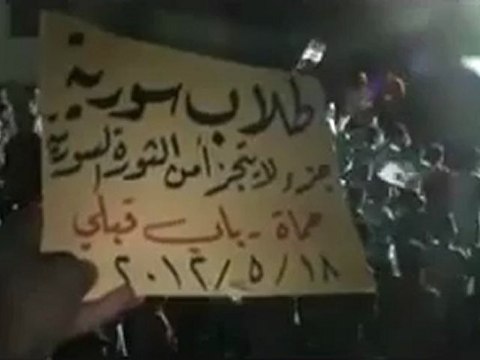 طلاب سورية
جزء لا يتجزأ من الثورة السورية
حماة - باب قبلي
٢٠١٢/٥/١٨